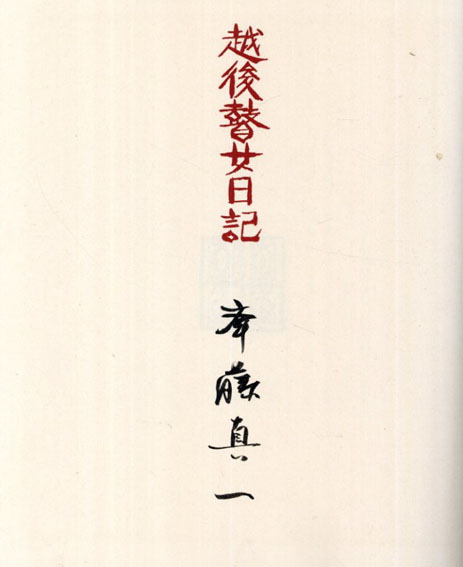 越後瞽女日記
斎藤真一